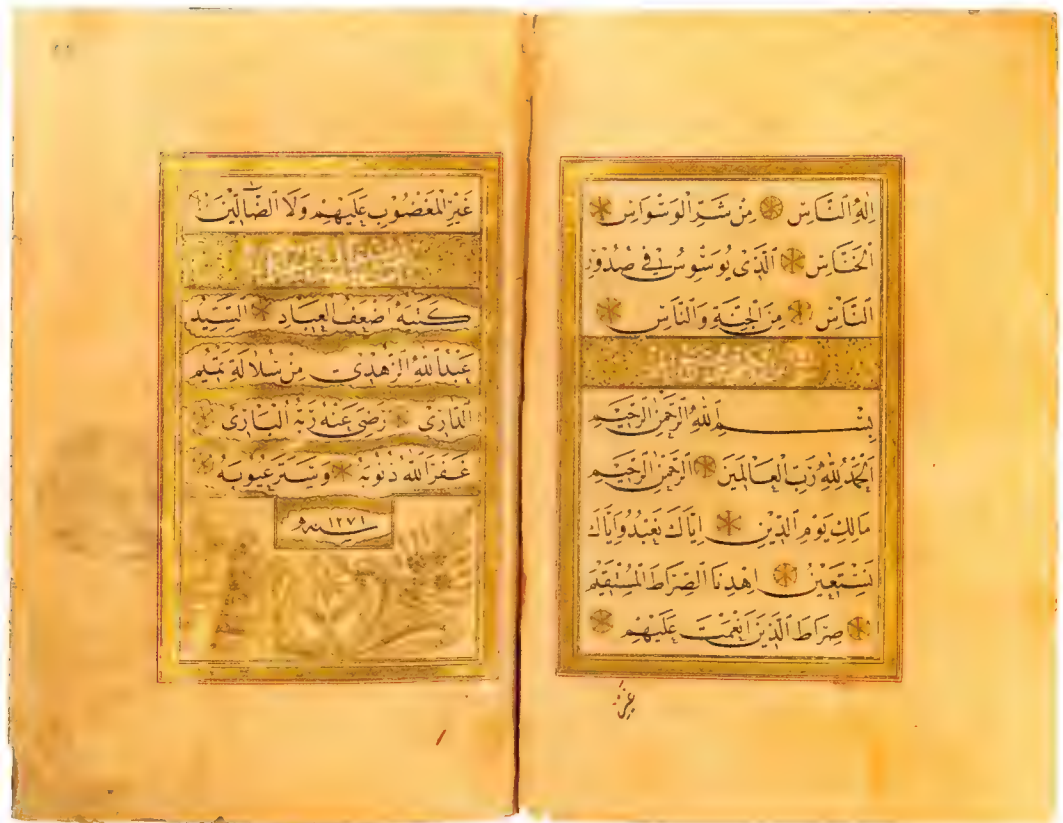 اِلٰهِ النَّاسِ مِنْ شَرِّ الْوَسْوَاسِ
الْخَنَّاسِ اَلَّذٖى يُوَسْوِسُ فٖى صُدُورِ
النَّاسِ مِنَ الْجِنَّةِ وَالنَّاسِ
بِسْمِ اللّٰهِ الرَّحْمٰنِ الرَّحٖيمِ
اَلْحَمْدُ لِلّٰهِ رَبِّ الْعَالَمٖينَ اَلرَّحْمٰنِ الرَّحٖيمِ
مَالِكِ يَوْمِ الدّٖينِ اِيَّاكَ نَعْبُدُ وَاِيَّاكَ
نَسْتَعٖينُ اِهْدِنَا الصِّرَاطَ الْمُسْتَقٖيمَ
صِرَاطَ الَّذٖينَ اَنْعَمْتَ عَلَيْهِمْ
غَيْرِ
غَيْرِ الْمَغْضُوبِ عَلَيْهِمْ وَلَا الضَّٓالّٖينَ
كَتَبَهُ اَضْعَفُ الْعِبَادِ السَّيِّدْ
عَبْدُ اللّٰهِ الزُّهْدِى مِنْ سُلَالَةِ تَمِيمِ
الدَّارِى رَضِىَ عَنْهُ رَبُّهُ الْبَارِى
غَفَرَ اللّٰهُ ذُنُوبَهُ وَسَتَرَ عُيُوبَهُ
سنه ١٢٧١